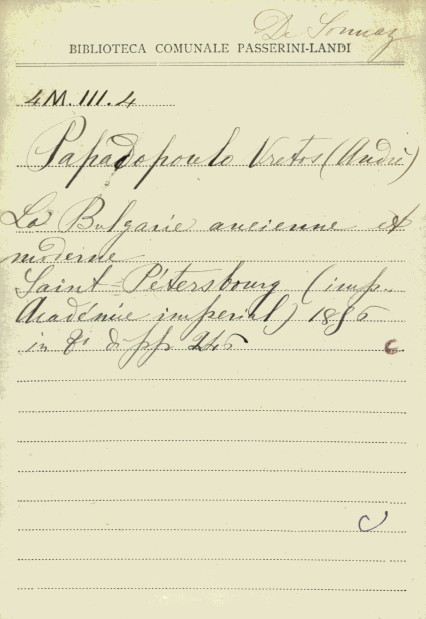 De Sonnaz
BIBLIOTECA COMUNALE PASSERINI-LANDI
4M.III.4
Papadopoulo Vretos (André)
La Bulgarie ancienne et
moderne
Saint-Pétersbourg (imp.
Académie imperial) 1856
in 8° di pp 246
C